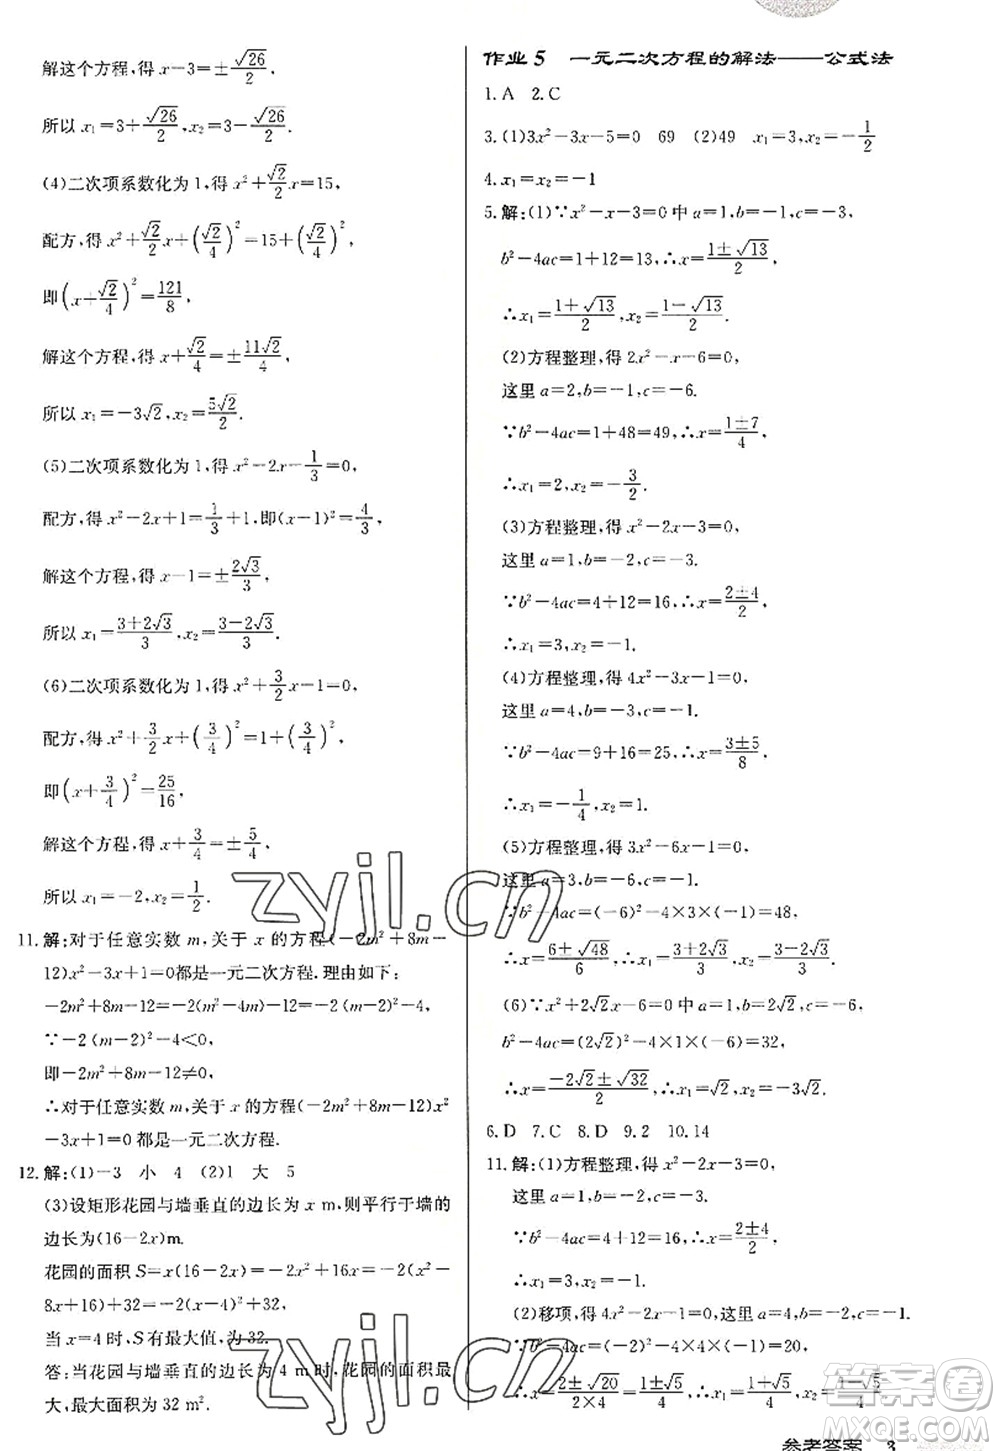 解这个方程,得 x-3=±√26/2,
所以 x₁=3+√26/2,x₂=3-√26/2.
(4)二次项系数化为 1,得 x²+√2/2x=15,
配方,得 x²+√2/2x+(√2/4)²=15+(√2/4)²,
即(x+√2/4)²=121/8,
解这个方程,得 x+√2/4=±11√2/4,
所以 x₁=-3√2,x₂=5√2/2.
(5)二次项系数化为 1,得 x²-2x-1/3=0,
配方,得 x²-2x+1=1/3+1,即(x-1)²=4/3,
解这个方程,得 x-1=±2√3/3,
所以 x₁=3+2√3/3,x₂=3-2√3/3.
(6)二次项系数化为 1,得 x²+3/2x-1=0,
配方,得 x²+3/2x+(3/4)²=1+(3/4)²,
即(x+3/4)²=25/16,
解这个方程,得 x+3/4=±5/4,
所以 x₁=-2,x₂=1/2.
11.解:对于任意实数 m,关于 x 的方程(-2m²+8m-
12)x²-3x+1=0都是一元二次方程.理由如下:
-2m²+8m-12=-2(m²-4m)-12=-2(m-2)²-4,
∵-2(m-2)²-4<0,
即-2m²+8m-12≠0,
∴对于任意实数 m,关于 x 的方程(-2m²+8m-12)x²
-3x+1=0 都是一元二次方程.
12.解:(1)-3 小 4 (2)1 大 5
(3)设矩形花园与墙垂直的边长为 x m,则平行于墙的
边长为(16-2x)m.
花园的面积 S=x(16-2x)=-2x²+16x=-2(x²-
8x+16)+32=-2(x-4)²+32,
当 x=4 时,S 有最大值,为 32.
答:当花园与墙垂直的边长为 4 m时,花园的面积最
大,最大面积为 32 m².
作业 5 一元二次方程的解法——公式法
1.A 2.C
3.(1)3x²-3x-5=0 69 (2)49 x₁=3,x₂=-1/2
4.x₁=x₂=-1
5.解:(1)∵x²-x-3=0 中 a=1,b=-1,c=-3,
b²-4ac=1+12=13,∴x=1±√13/2,
∴x₁=1+√13/2,x₂=1-√13/2.
(2)方程整理,得 2x²-x-6=0,
这里 a=2,b=-1,c=-6.
∵b²-4ac=1+48=49,∴x=1±7/4,
∴x₁=2,x₂=-3/2.
(3)方程整理,得 x²-2x-3=0,
这里 a=1,b=-2,c=-3.
∵b²-4ac=4+12=16,∴x=2±4/2,
∴x₁=3,x₂=-1.
(4)方程整理,得 4x²-3x-1=0,
这里 a=4,b=-3,c=-1.
∵b²-4ac=9+16=25,∴x=3±5/8,
∴x₁=-1/4,x₂=1.
(5)方程整理,得 3x²-6x-1=0,
这里 a=3,b=-6,c=-1.
∵b²-4ac=(-6)²-4×3×(-1)=48,
∴x=6±√48/6,∴x₁=3+2√3/3,x₂=3-2√3/3.
(6)∵x²+2√2x-6=0 中 a=1,b=2√2,c=-6,
b²-4ac=(2√2)²-4×1×(-6)=32,
∴x=-2√2±√32/2,∴x₁=√2,x₂=-3√2.
6.D 7.C 8.D 9.2 10.14
11.解:(1)方程整理,得 x²-2x-3=0,
这里 a=1,b=-2,c=-3.
∵b²-4ac=4+12=16,∴x=2±4/2,
∴x₁=3,x₂=-1.
(2)移项,得 4x²-2x-1=0,a=4,b=-2,c=-1.
∵b²-4ac=(-2)²-4×4×(-1)=20,
∴x=2±√20/2×4=1±√5/4,∴x₁=1+√5/4,x₂=1-√5/4.
参考答案 3
zyjl.cn
zyjl.cn
答案圈